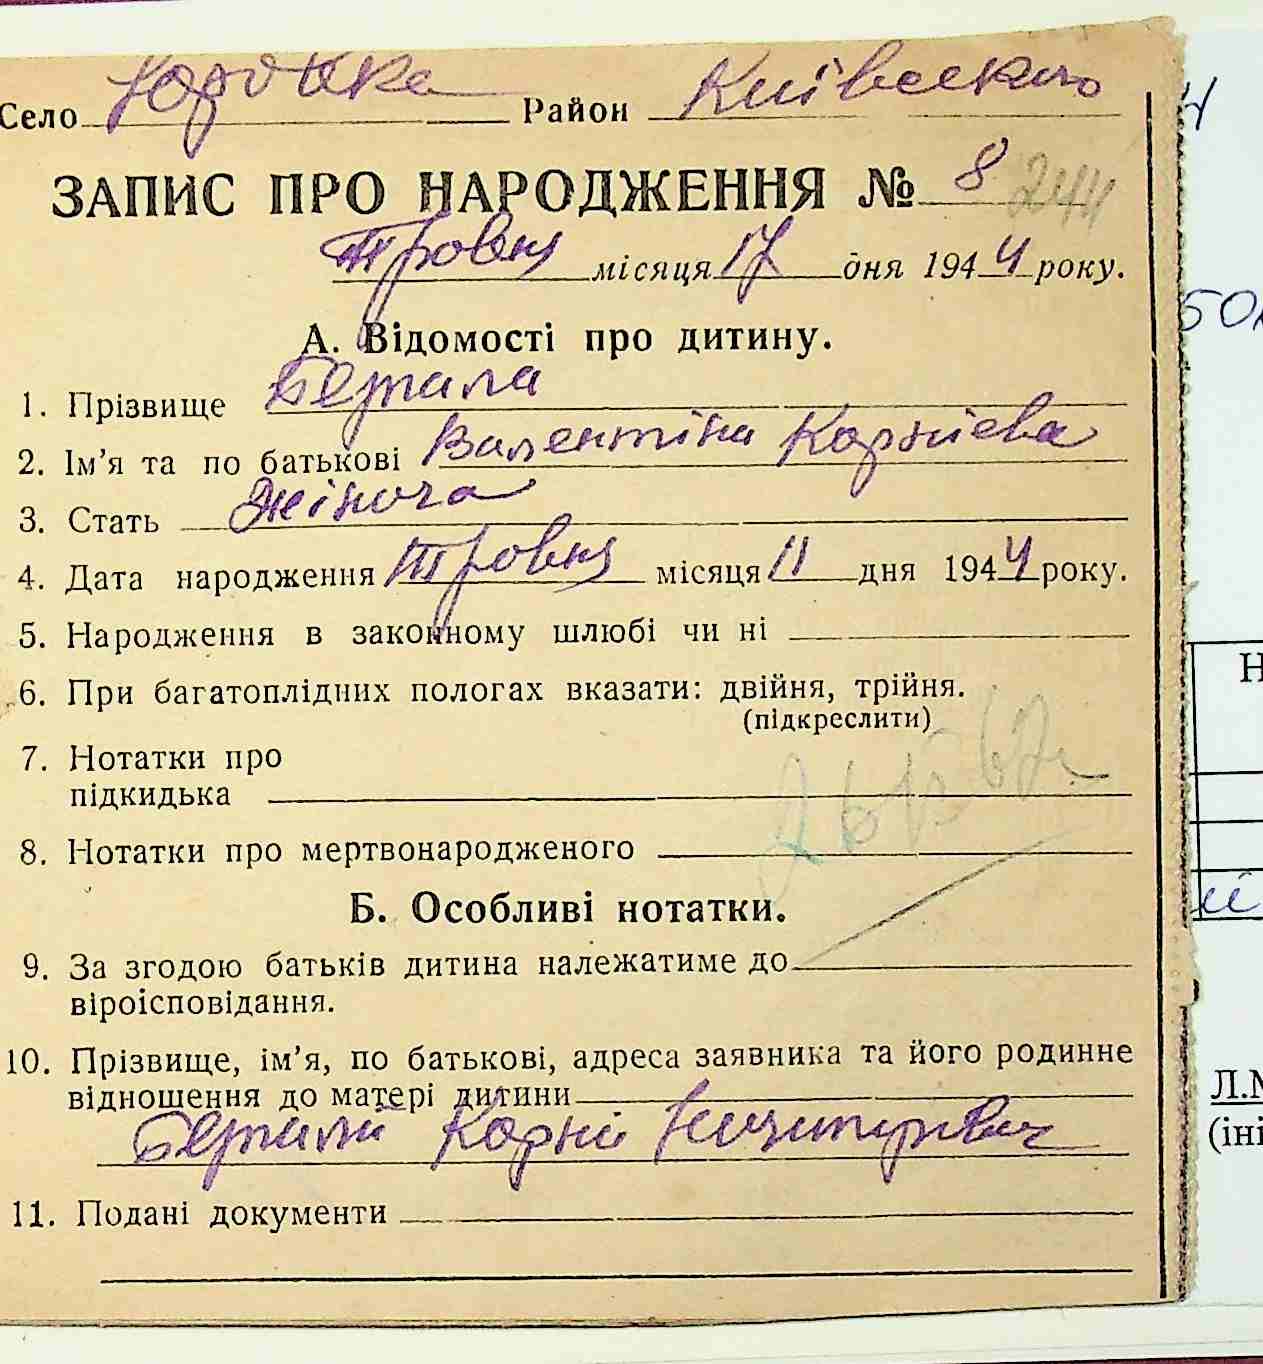 Село Юровка Район Київського
ЗАПИС ПРО НАРОДЖЕННЯ № 8 244
Травня місяця 17 дня 1944 року.
А. Відомості про дитину.
1. Прізвище
2. Ім'я та по батькові Валентіна Корнієва
3. Стать Жіноча
4. Дата народження Травня місяця 11 дня 1944 року.
5. Народження в законному шлюбі чи ні
6. При багатоплідних пологах вказати: двійня, трійня.
(підкреслити)
7. Нотатки про
підкидька
8. Нотатки про мертвонародженого
Б. Особливі нотатки.
9. За згодою батьків дитина належатиме до
віроісповідання.
10. Прізвище, ім'я, по батькові, адреса заявника та його родинне
відношення до матері дитини
Корній
11. Подані документи
Л.М
(іні